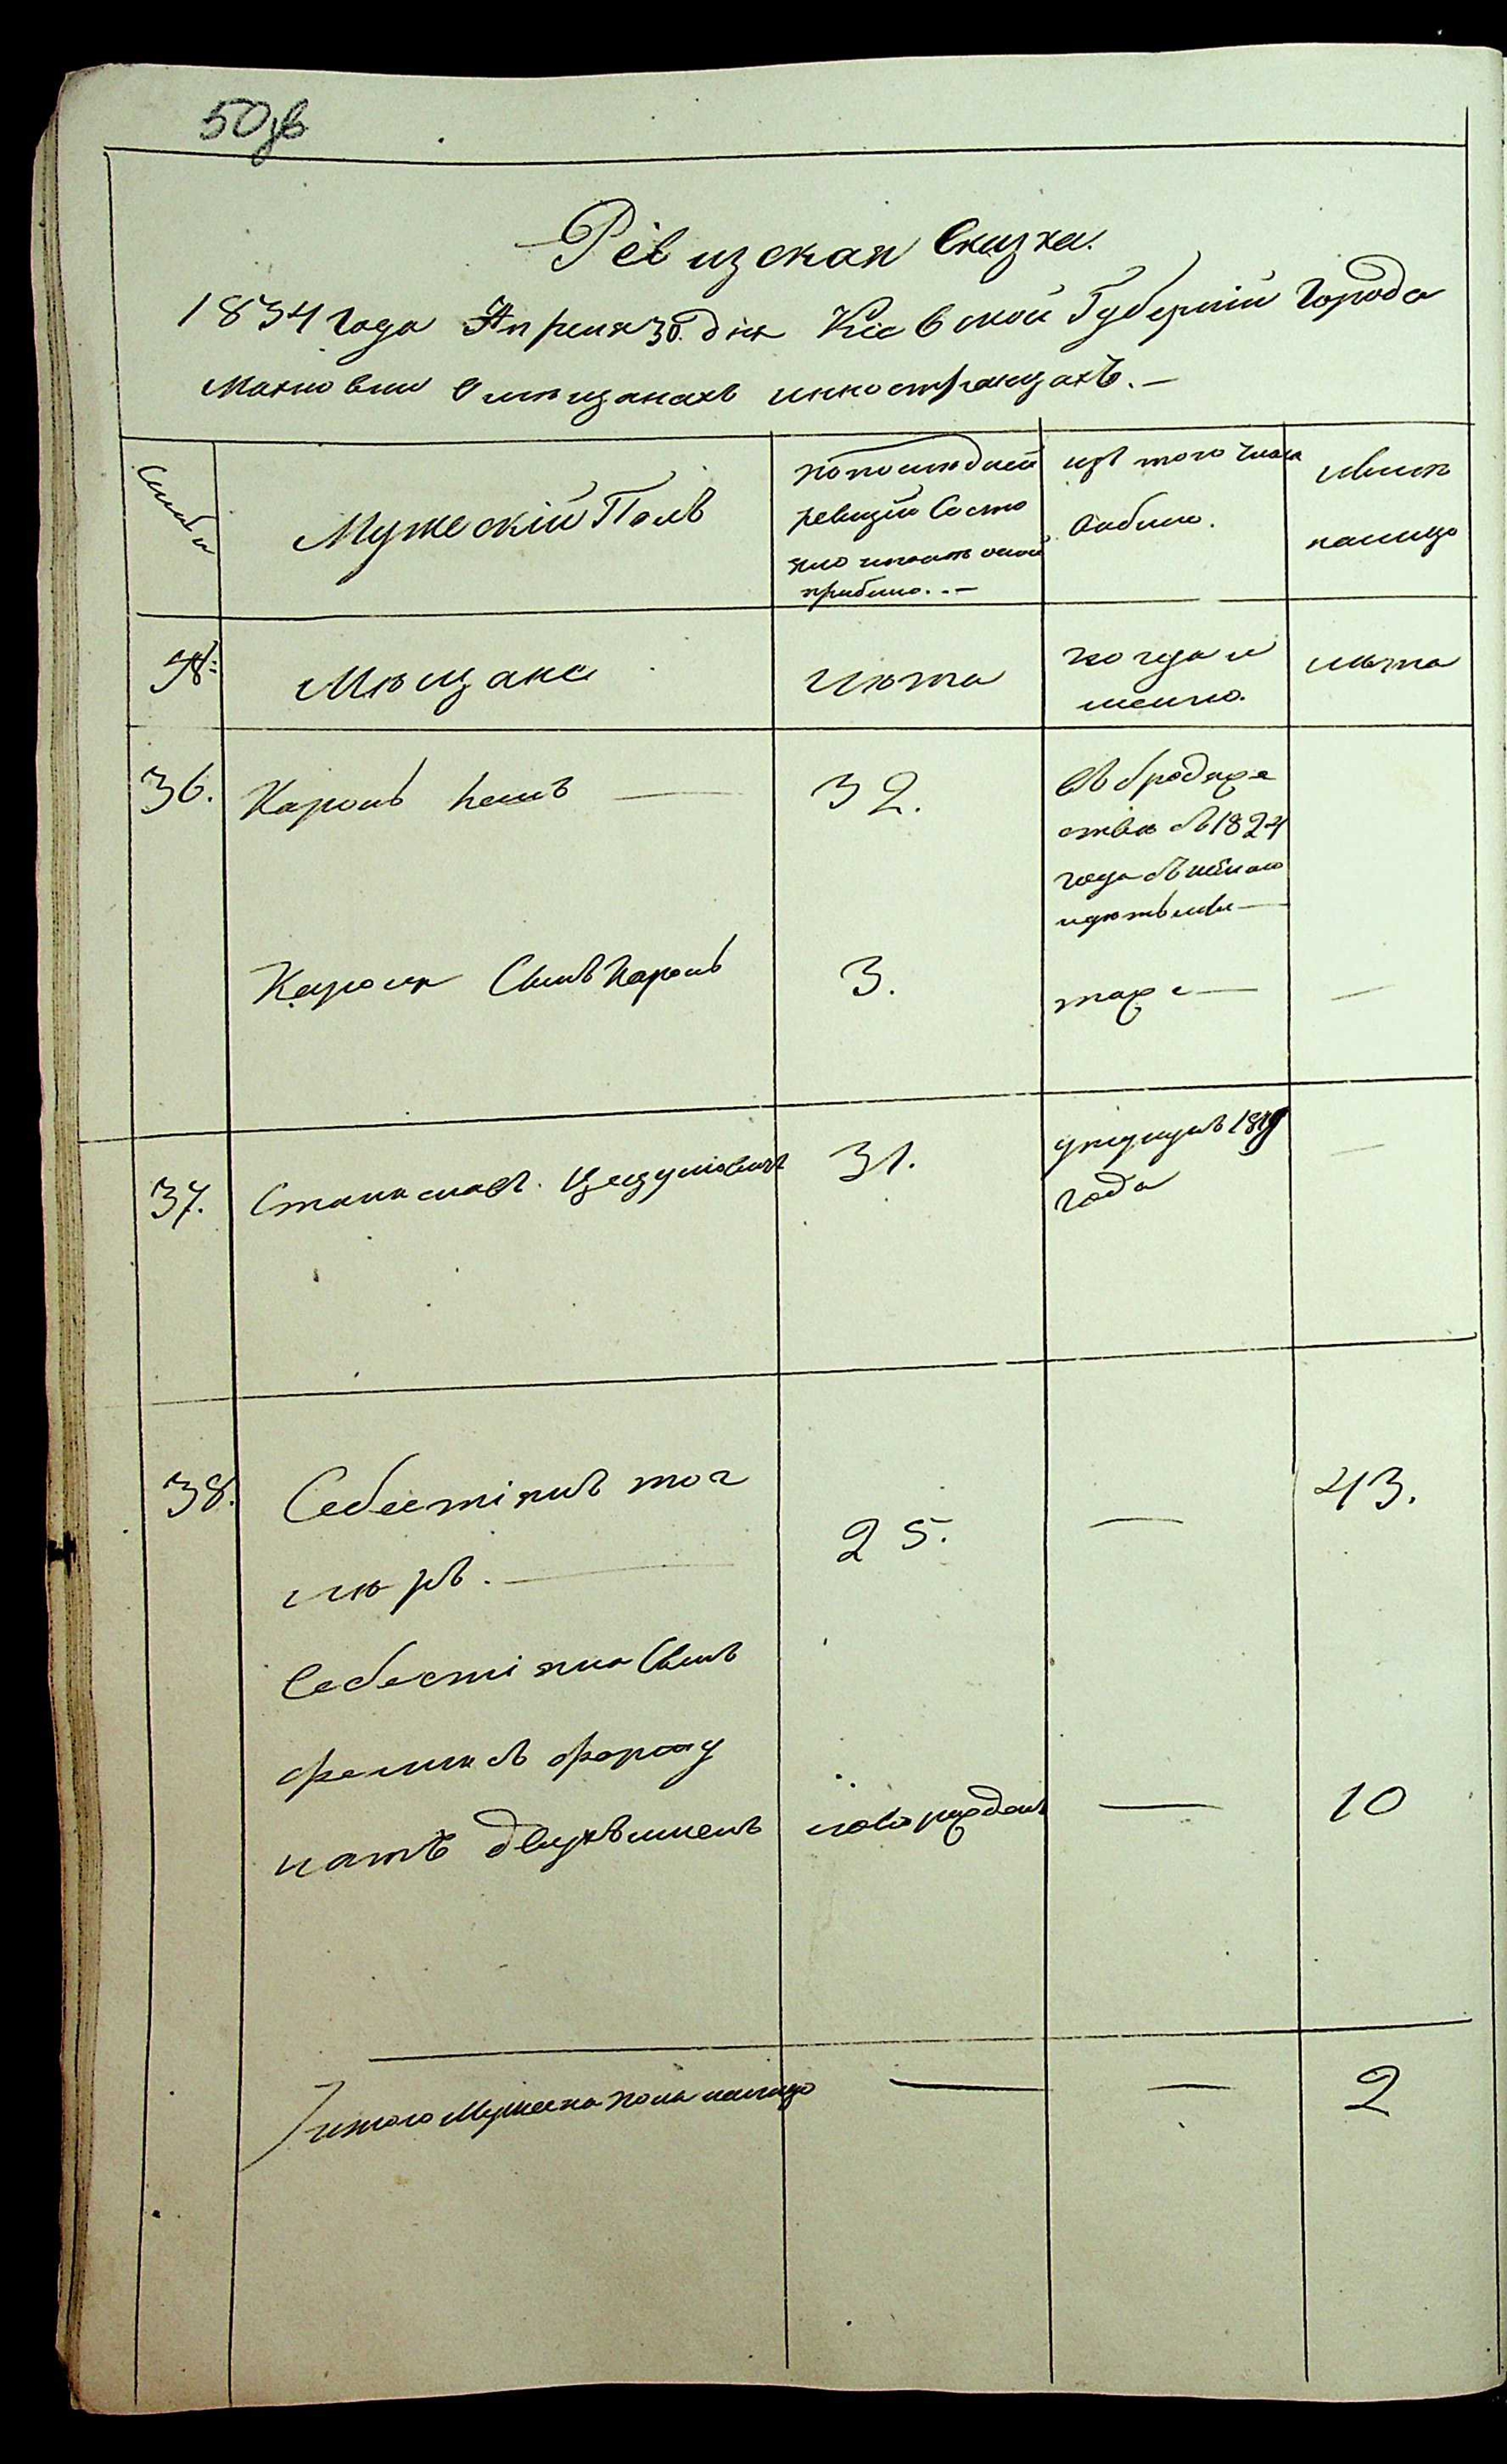 50зв
Ревизская Сказка.
1834 Года Апреля 30. дня Кіевской Губерніи Города
Махновки О мещанахъ инностранцахъ. —
Семьи
Мужескій Полъ
по последней
ревизіи Состо
яло и после оной
прибыло. . —
изъ того числа
выбыло.
ныне
налицо
№:
Мѣщане
Лѣта
когда и
именно.
лѣта
36.
Кароль —
32.
Въ бродяже
стве съ 1824
года
Кароля Сынъ Кароль
3.
тоже —
—
37.
Станиславъ
31.
1819
года
—
38.
Себестіянъ мог
лѣръ. —
25.
—
43.
Себестіяна Сынъ
феликсъ форту
натъ двухъименъ
новорожденъ
—
10
Итого Мужеска пола налицо
—
—
2